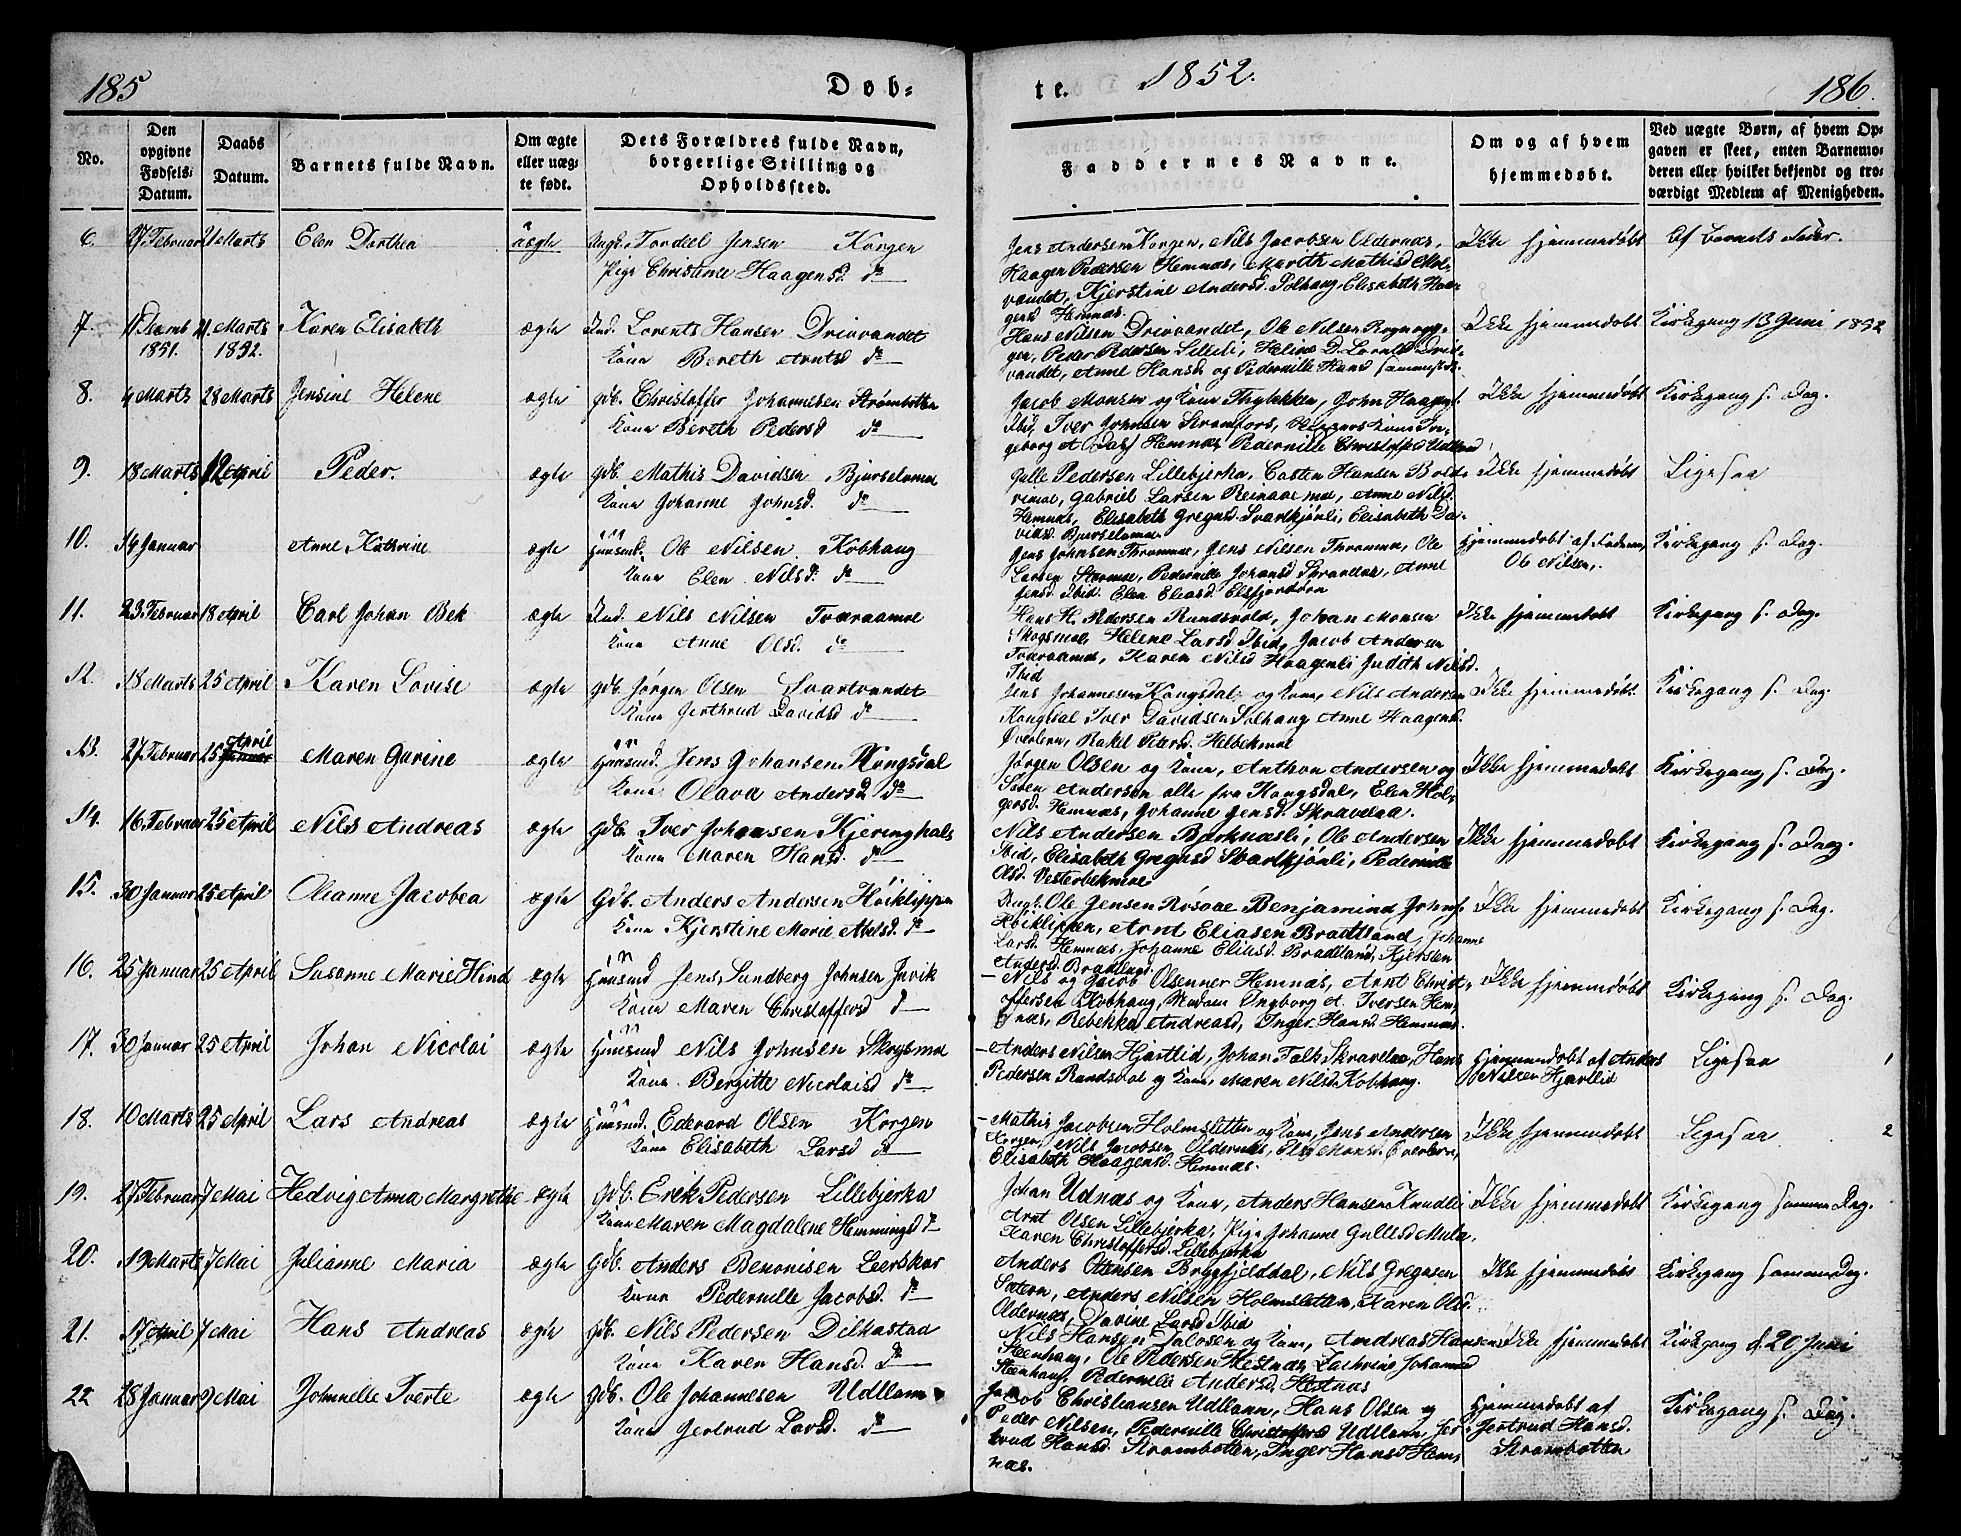 185
Døb-
te.
1852.
186.
No.
Den opgivne Fødsels-Datum.
Daabs Datum.
Barnets fulde Navn.
Om ægte eller uægte født.
Dets Forældres fulde Navn, borgerlige Stilling og Opholdssted.
Faddernes Navne.
Om og af hvem hjemmedøbt.
Ved uægte Børn, af hvem Opgaven er skeet, enten Barnemoderen eller hvilket bekjendt og troværdigt Medlem af Menigheden.
6. 27. Februar 21 Marts Elen Dorthea uægte Ungk. Tordeel Jensen Korgen
Pige Christine Haagensd. do
Jens Andersen Korgen, Nils Jacobsen Oldernæs,
Haagen Pedersen Hemnæs, Mareth Mathisd
Kjerstine Andersd. Solhaug, Elisabeth Haa-
gensd Hemnæs.
Ikke hjemmedøbt Af Barnets Fader.
7. 1851. 21 Marts 1852. Karen Elisabeth ægte Ind. Lorents Hansen Drivvandet
Kone Bereth Arntsd do
Hans Nilsen Drivvandet, Ole Nilsen
Peder Pedersen Lillebj, Heline D. Lorntsd Driv-
vandet, Anne Hansd og Pedernille Hansd sammesteds.
Ikke hjemmedøbt Kirkegang 13 Juni 1852
8. 4 Marts 28 Marts Jensine Helene ægte Gdb. Christoffer Johannesen Strømbotten
Kone Bereth Pedersd do
Jacob Monsen og Kone John Haagens.
Ibid, Iver Johnsen Stromfors, Kone In-
geborg A. Hemnæs, Pedernille Christoffersd
Ikke hjemmedøbt Kirkegang s. Dag.
9. 18 Marts 12 April Peder. ægte Gdb. Mathis Davidsen Bjurselvmoe
Kone Johanne Johnsd. do
Gulle Pedersen Lillebjerka, Casten Hansen
Gabriel Larsen Reinaamoe, Anne Nilsd.
Hemnæs, Elisabeth Gregusd. Svartkjønli, Elisabeth Da-
vidsd. Bjurselvmoe
Ikke hjemmedøbt Ligesaa
10. 14 Januar Anne Kathrine ægte Huusmd. Ole Nilsen Kobhaug
Kone Elen Nilsd. do
Jens Johnsen Jens Nilsen Ole
Larsen Pedernille Johansd Skravelaa, Anne
Jensd Ibid. Elen Eliasd. Elsfjordøren
Hjemmedøbt af Faderen,
Ole Nilsen.
Kirkegang s. Dag.
11. 23. Februar 18 April Carl Johan Bek ægte Ind. Nils Nilsen Tveraamoe
Kone Anne Olsd. do
Hans H. Pedersen Rundsvold, Johan Monsen
Skogsmoe, Helene Larsd Ibid, Jacob Andersen
Tveraamoe, Karen Nilsd Haagenli Judith Nilsd.
Ibid
Ikke hjemmedøbt Kirkegang s. Dag.
12. 18 Marts 25 April Karen Lovise ægte Gdb. Jørgen Olsen Svartvandet
Kone Jerthrud Davidsd do
Jens Johannesen Kongsdal og Kone, Nils Andersen
Kongsdal Iver Davidsen Solhaug Anne Haagensd.
Øverleen, Rakel Petersd. Helbekmoe
Ikke hjemmedøbt Kirkegang s. Dag.
13. 27. Februar 25 April Maren Gurine ægte Huusmd. Jens Johansen Kongsdal
Kone Olava Andersd do
Jørgen Olsen og Kone, Anthon Andersen og
Søren Andersen alle fra Kongsdal, Elen Hol-
gersd. Hemnæs, Johanne Jensd. Skravelaa.
Ikke hjemmedøbt Kirkegang s. Dag.
14. 16. Februar 25 April Nils Andreas ægte Gdb. Iver Johansen Kjeringhals
Kone Maren Hansd. do
Nils Andersen Bjerknæsli, Ole Andersen
Ibid, Elisabeth Gregusd Svartkjønli, Pedernille
Olsd. Vesterbekmoe
Ikke hjemmedøbt Kirkegang s. Dag.
15. 30 Januar 25 April Olianne Jacobea ægte Gdb. Anders Andersen Høiklippen
Kone Kjerstine Marie Abelsd. do
Ungk. Ole Jensen Røsaae Benjamind Johns.
Høiklippen, Arnt Eliasen Bradtland, Johanne
Larsd. Hemnæs, Johanne Eliasd. Bradtland, Kjersten
Andersd. Bradtland.
Ikke hjemmedøbt Kirkegang s. Dag.
16. 25 Januar 25 April Susanne Marie Hind ægte Huusmd Jens Sundberg Johnsen Juvik
Kone Maren Christoffersd do
Nils og Jacob Olsenner Hemnæs, Arnt Christ-
offersen Kobhaug, Madam Ingborg A. Iversen Hem-
næs, Rebekka Andreasd, Inger Hansd Hemnæs.
Ikke hjemmedøbt Kirkegang s. Dag.
17. 30 Januar 25 April Johan Nicolai ægte Huusmd Nils Johnsen Skogsmoe
Kone Bergitte Nicolaisd do
Anders Nilsen Hjartlid, Johan Falk Skravelaa, Hans
Pedersen Rundsvol og Kone, Maren Nilsd Kobhaug.
Hjemmedøbt af Anders
Nilsen Hjartlid
Ligesaa 1
18. 10 Marts 25 April Lars Andreas ægte Huusmd. Edevard Olsen Korgen
Kone Elisabeth Larsd do
Mathis Jacobsen Holmsletten og Kone, Jens Andersen
Korgen, Nils Jacobsen Oldernæs, Monsd. Øverleen,
Elisabeth Haagensd. Hemnæs.
Ikke hjemmedøbt Ligesaa 2
19. 27. Februar 7 Mai Hedvig Anna Margrethe ægte Gdb. Erik Pedersen Lillebjerka
Kone Maren Magdalene Hemmingsd do
Johan Udnæs og Kone, Anders Hansen Knudli
Arnt Olsen Lillebjerka, Pige Johanne Gullesd Mula,
Karen Christoffersd. Lillebjerka
Ikke hjemmedøbt Kirkegang samme Dag.
20. 19 Marts 7 Mai Julianne Maria ægte Gdb. Anders Benonisen Leerskar
Kone Pedernille Jacobsd. do
Anders Ottensen Brygfjelddal, Nils Gregusen
Sætern, Anders Nilsen Holmsletten, Karen Olsd.
Oldernæs, Davine Larsd Ibid
Ikke hjemmedøbt Kirkegang samme Dag.
21. 17 April 7 Mai Hans Andreas ægte Gdb. Nils Pedersen Dilkestad
Kone Karen Hansd. do
Nils Hansen og Kone, Andreas Hansen
Steenhaug, Ole Pedersen Hestnæs, Johannesd
Steenhaug, Pedernille Andersd. Hestnæs
Ikke hjemmedøbt Kirkegang d. 20 Juni
22 28 Januar 9 Mai Johnnelle Tverte ægte Gdb. Ole Johannesen Udllann
Kone Gertrud Larsd. do
Jacob Christiansen Udllann, Hans Olsen og
Peder Nilsen, Pedernille Christoffersd Udllann, Jer-
trud Hansd. Strømbotten, Inger Hansd Hem-
næs.
Hjemmedøbt af
Gertrud Hansd.
Strømbotten
Kirkegang s. Dag.